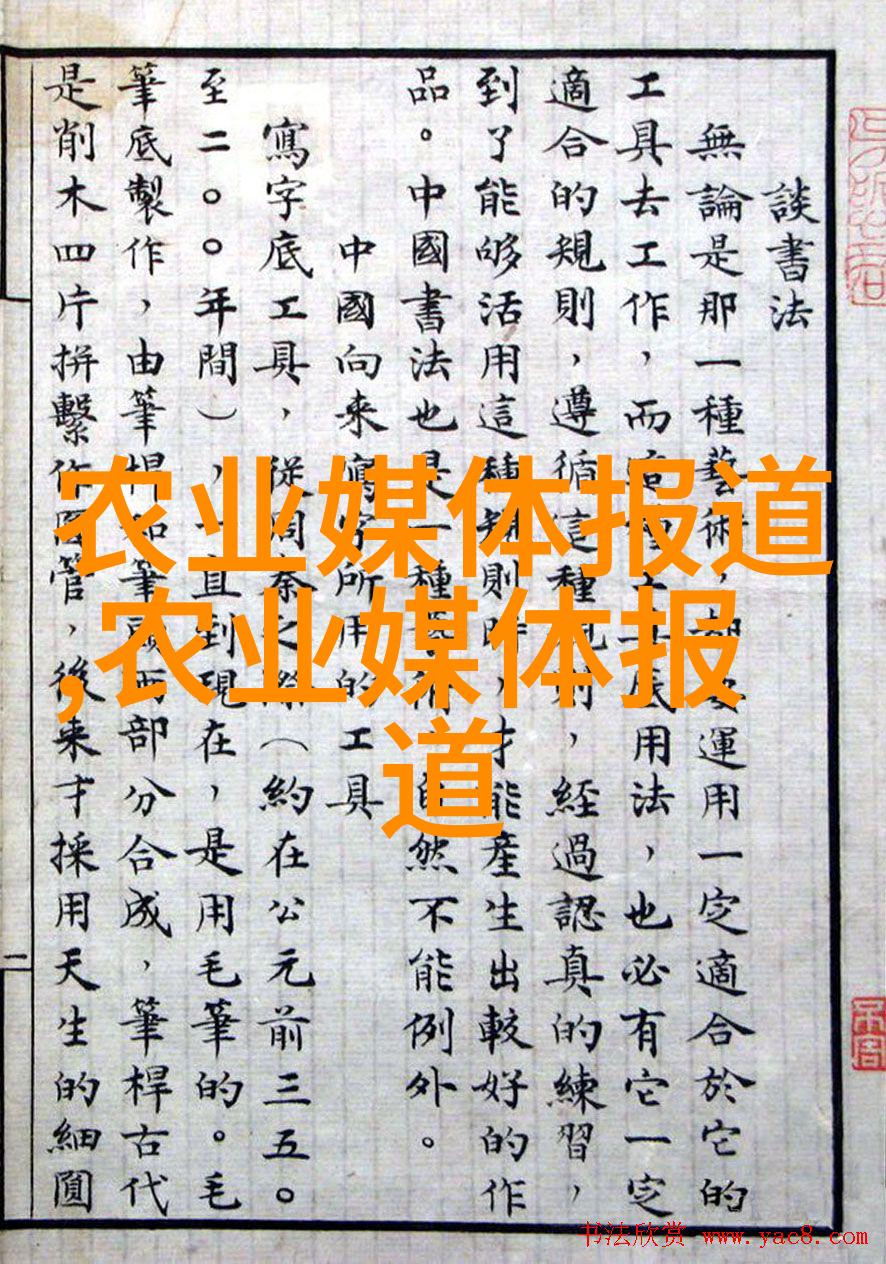 談書法
無論是那一種藝術，運用一定適合於它的
工具去工作，而用法，也必有它一定
適合的規則，遵循這種規則，經過認真的練習，
到了能够活用這種規則時，才能產生出較好的作
品。中國書法也是一種自然不能例外。
中國向来寫字所用的工具
寫字底工具，從周秦之際（約在公元前三五〇
至二〇〇年間），一直到現在，是用毛筆的。毛
筆底製作，由筆桿和筆頭两部分合成，筆桿古代
是削木四片拼繫作圓管，後来才採用天生的細圓
二
农业媒体报道
,农业媒体报
道
书法欣赏 www.yac8.com